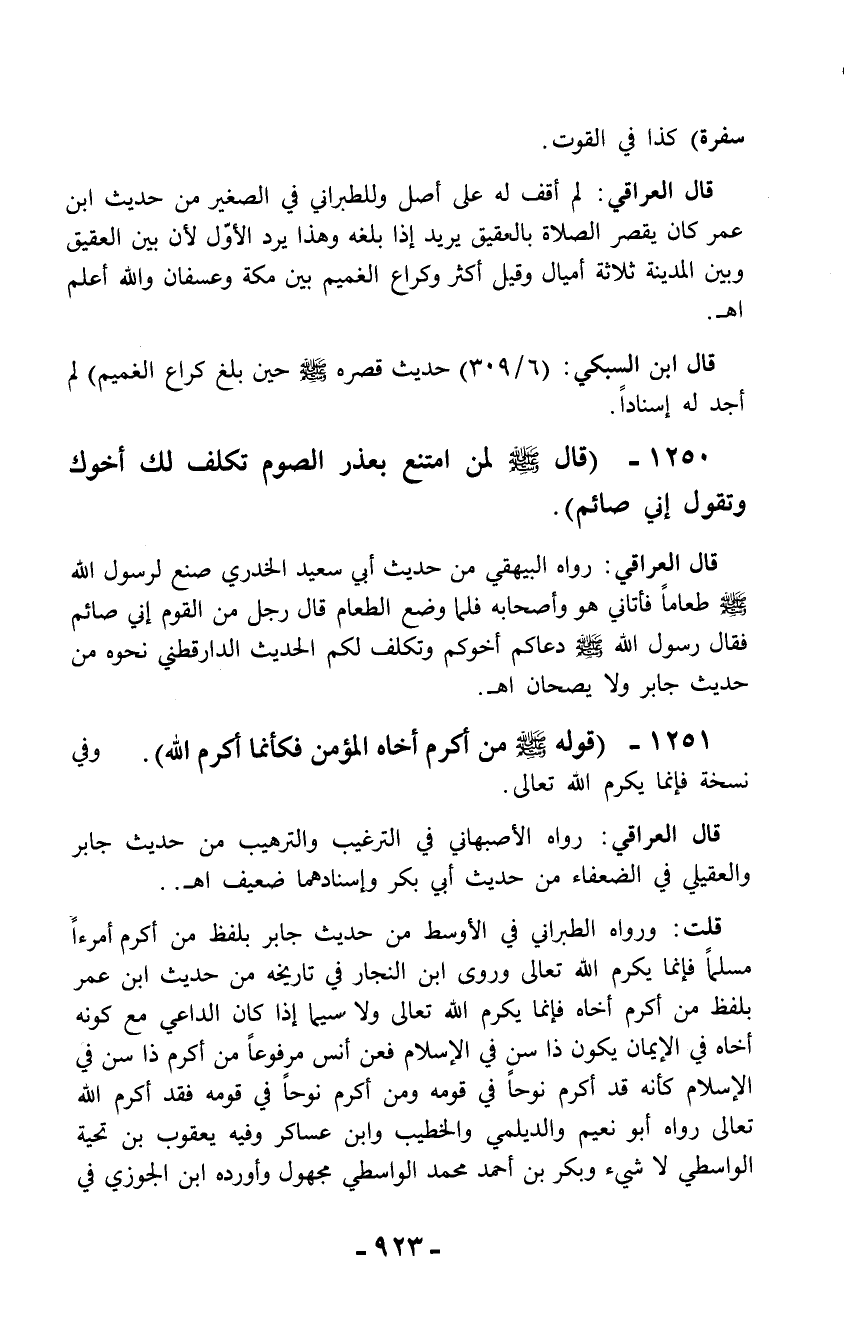 سفرة) كذا في القوت.
قال العراقي: لم أقف له على أصل وللطبراني في الصغير من حديث ابن
عمر كان يقصر الصلاة بالعقيق يريد إذا بلغه وهذا يرد الأوّل لأن بين العقيق
وبين المدينة ثلاثة أميال وقيل أكثر وكراع الغميم بين مكة وعسفان والله أعلم
اهـ.
قال ابن السبكي: (٣٠٩/٦) حديث قصره ﷺ حين بلغ كراع الغميم) لم
أجد له إسناداً.
١٢٥٠ - (قال ﷺ لمن امتنع بعذر الصوم تكلف لك أخوك
وتقول إني صائم).
قال العراقي: رواه البيهقي من حديث أبي سعيد الخدري صنع لرسول الله
ﷺ طعاماً فأتاني هو وأصحابه فلما وضع الطعام قال رجل من القوم إني صائم
فقال رسول الله ﷺ دعاكم أخوكم وتكلف لكم الحديث الدارقطني نحوه من
حديث جابر ولا يصحان اهـ.
١٢٥١ - (قوله ﷺ من أكرم أخاه المؤمن فكأنما أكرم الله). وفي
نسخة فإنما يكرم الله تعالى.
قال العراقي: رواه الأصبهاني في الترغيب والترهيب من حديث جابر
والعقيلي في الضعفاء من حديث أبي بكر وإسنادهما ضعيف اهـ..
قلت: ورواه الطبراني في الأوسط من حديث جابر بلفظ من أكرم أمرءاً
مسلماً فإنما يكرم الله تعالى وروى ابن النجار في تاريخه من حديث ابن عمر
بلفظ من أكرم أخاه فإنما يكرم الله تعالى ولا سيما إذا كان الداعي مع كونه
أخاه في الإيمان يكون ذا سن في الإسلام فعن أنس مرفوعاً من أكرم ذا سن في
الإسلام كأنه قد أكرم نوحاً في قومه ومن أكرم نوحاً في قومه فقد أكرم الله
تعالى رواه أبو نعيم والديلمي والخطيب وابن عساكر وفيه يعقوب بن تحية
الواسطي لا شيء وبكر بن أحمد محمد الواسطي مجهول وأورده ابن الجوزي في
- ٩٢٣ -